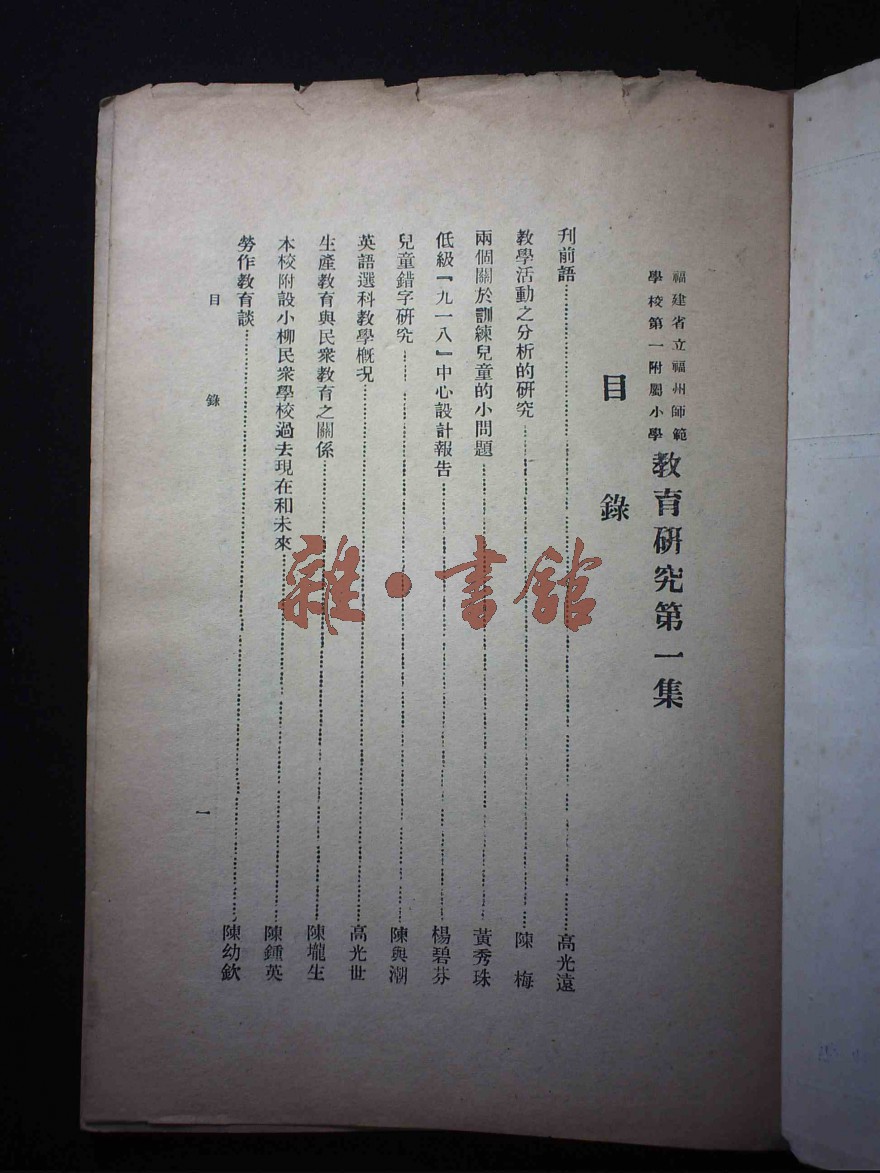 福建省立福州師範
學校第一附屬小學
教育研究第一集
目錄
刊前語……高光遠
教學活動之分析的研究……陳梅
兩個關於訓練兒童的小問題……黃秀珠
低級『九一八』中心設計報告……楊碧芬
兒童錯字研究……陳與潮
英語選科教學概況……高光世
生產教育與民衆教育之關係……陳壠生
本校附設小柳民衆學校過去現在和未來……陳鍾英
勞作教育談……陳幼欽
目錄
一
雜·書館